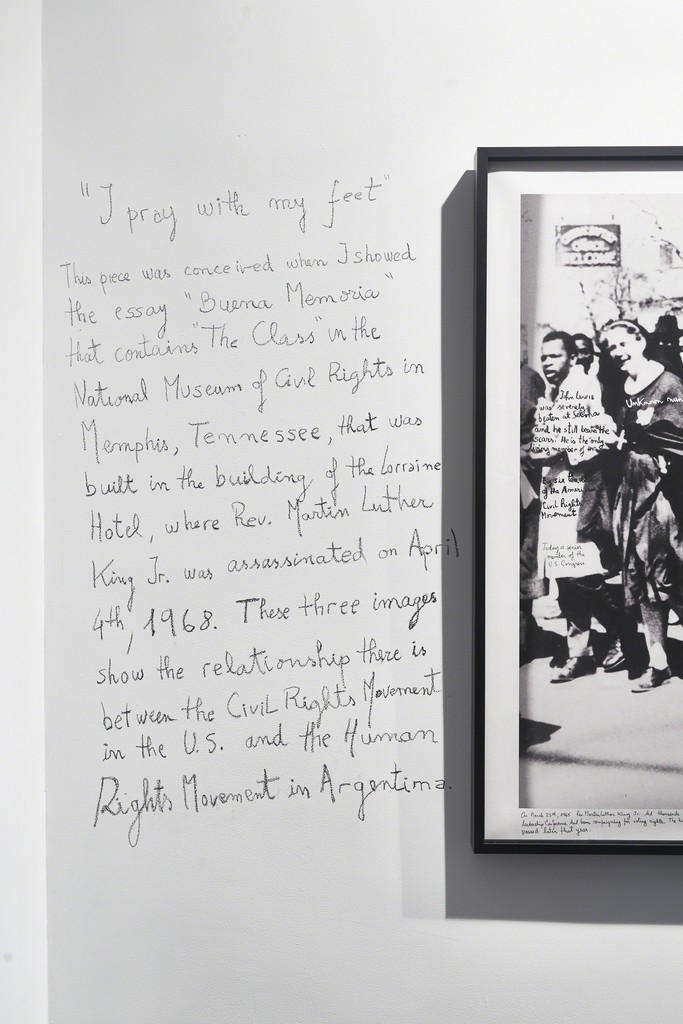 "I pray with my feet"
This piece was conceived when I showed
the essay "Buena Memoria"
that contains "The Class" in the
National Museum of Civil Rights in
Memphis, Tennessee, that was
built in the building of the Lorraine
Hotel, where Rev. Martin Luther
King Jr. was assassinated on April
4th, 1968. These three images
show the relationship there is
between the Civil Rights Movement
in the U.S. and the Human
Rights Movement in Argentina.
John Lewis
was severely
beaten at Selma
and he still bears the
scars. He is the only
living member of
Unknown nun
of the American
Civil Rights
Movement
Today a senior
member of the
U.S. Congress
On March 25th, 1965 Rev Martin Luther King Jr. led thousands
leadership Conference had been campaigning for voting rights. The
passed later that year.